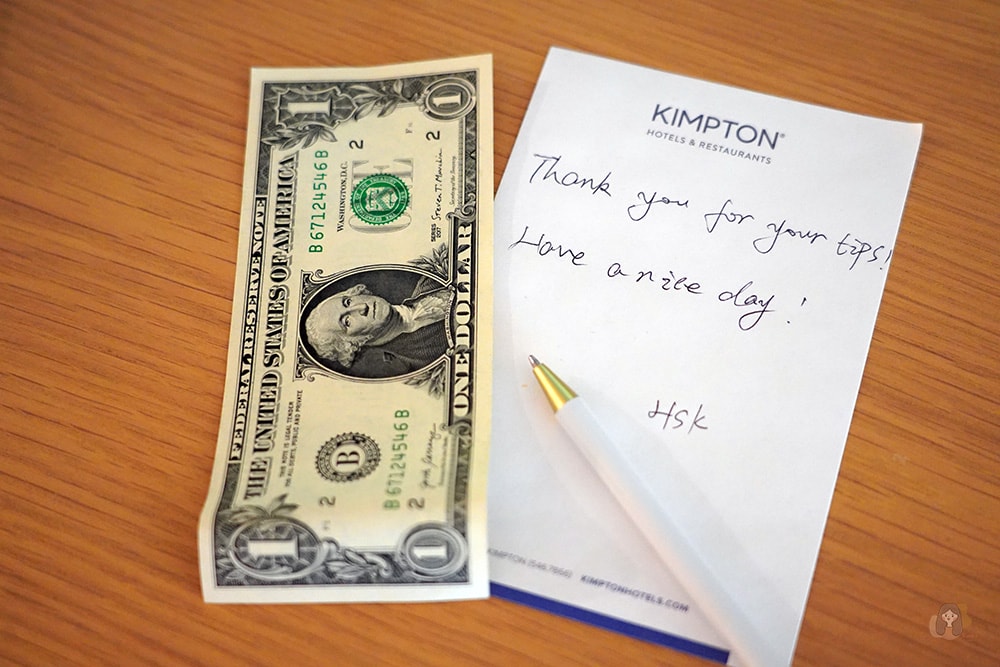 FEDERAL RESERVE NOTE
THE UNITED STATES OF AMERICA
THIS NOTE IS LEGAL TENDER
FOR ALL DEBTS, PUBLIC AND PRIVATE
B 67124546 B
WASHINGTON, D.C.
B
B 67124546 B
SERIES
2017
ONE DOLLAR
1
1
1
1
2
2
2
2
KIMPTON®
HOTELS & RESTAURANTS
Thank you for your tips!
Have a nice day!
Hsk
KIMPTONHOTELS.COM